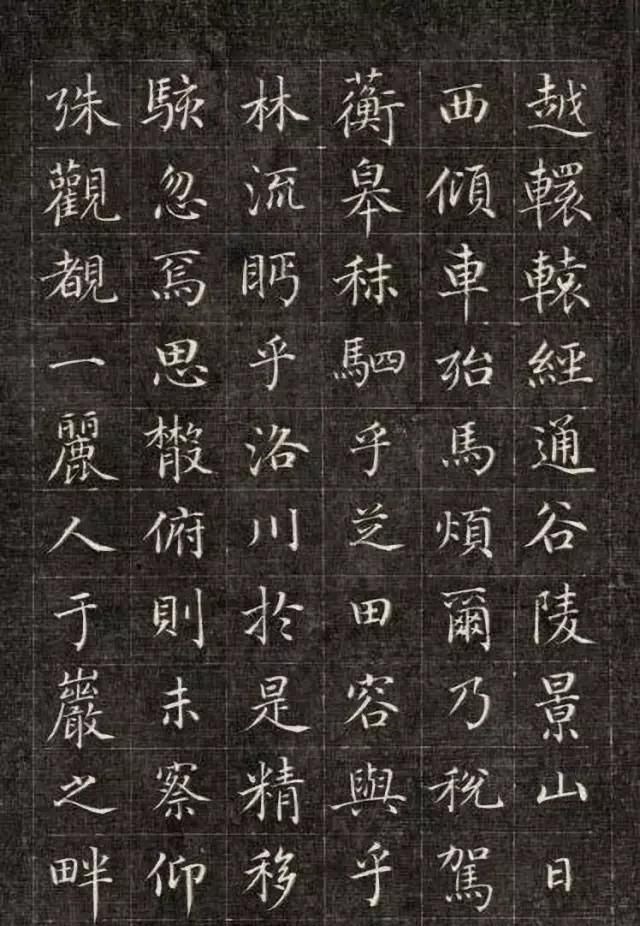 越轘轅經通谷陵景山日
西傾車殆馬煩爾乃稅駕
蘅皋秣駟乎芝田容與乎
林流眄乎洛川於是精移
駭忽焉思散俯則未察仰
殊觀覩一麗人于巖之畔